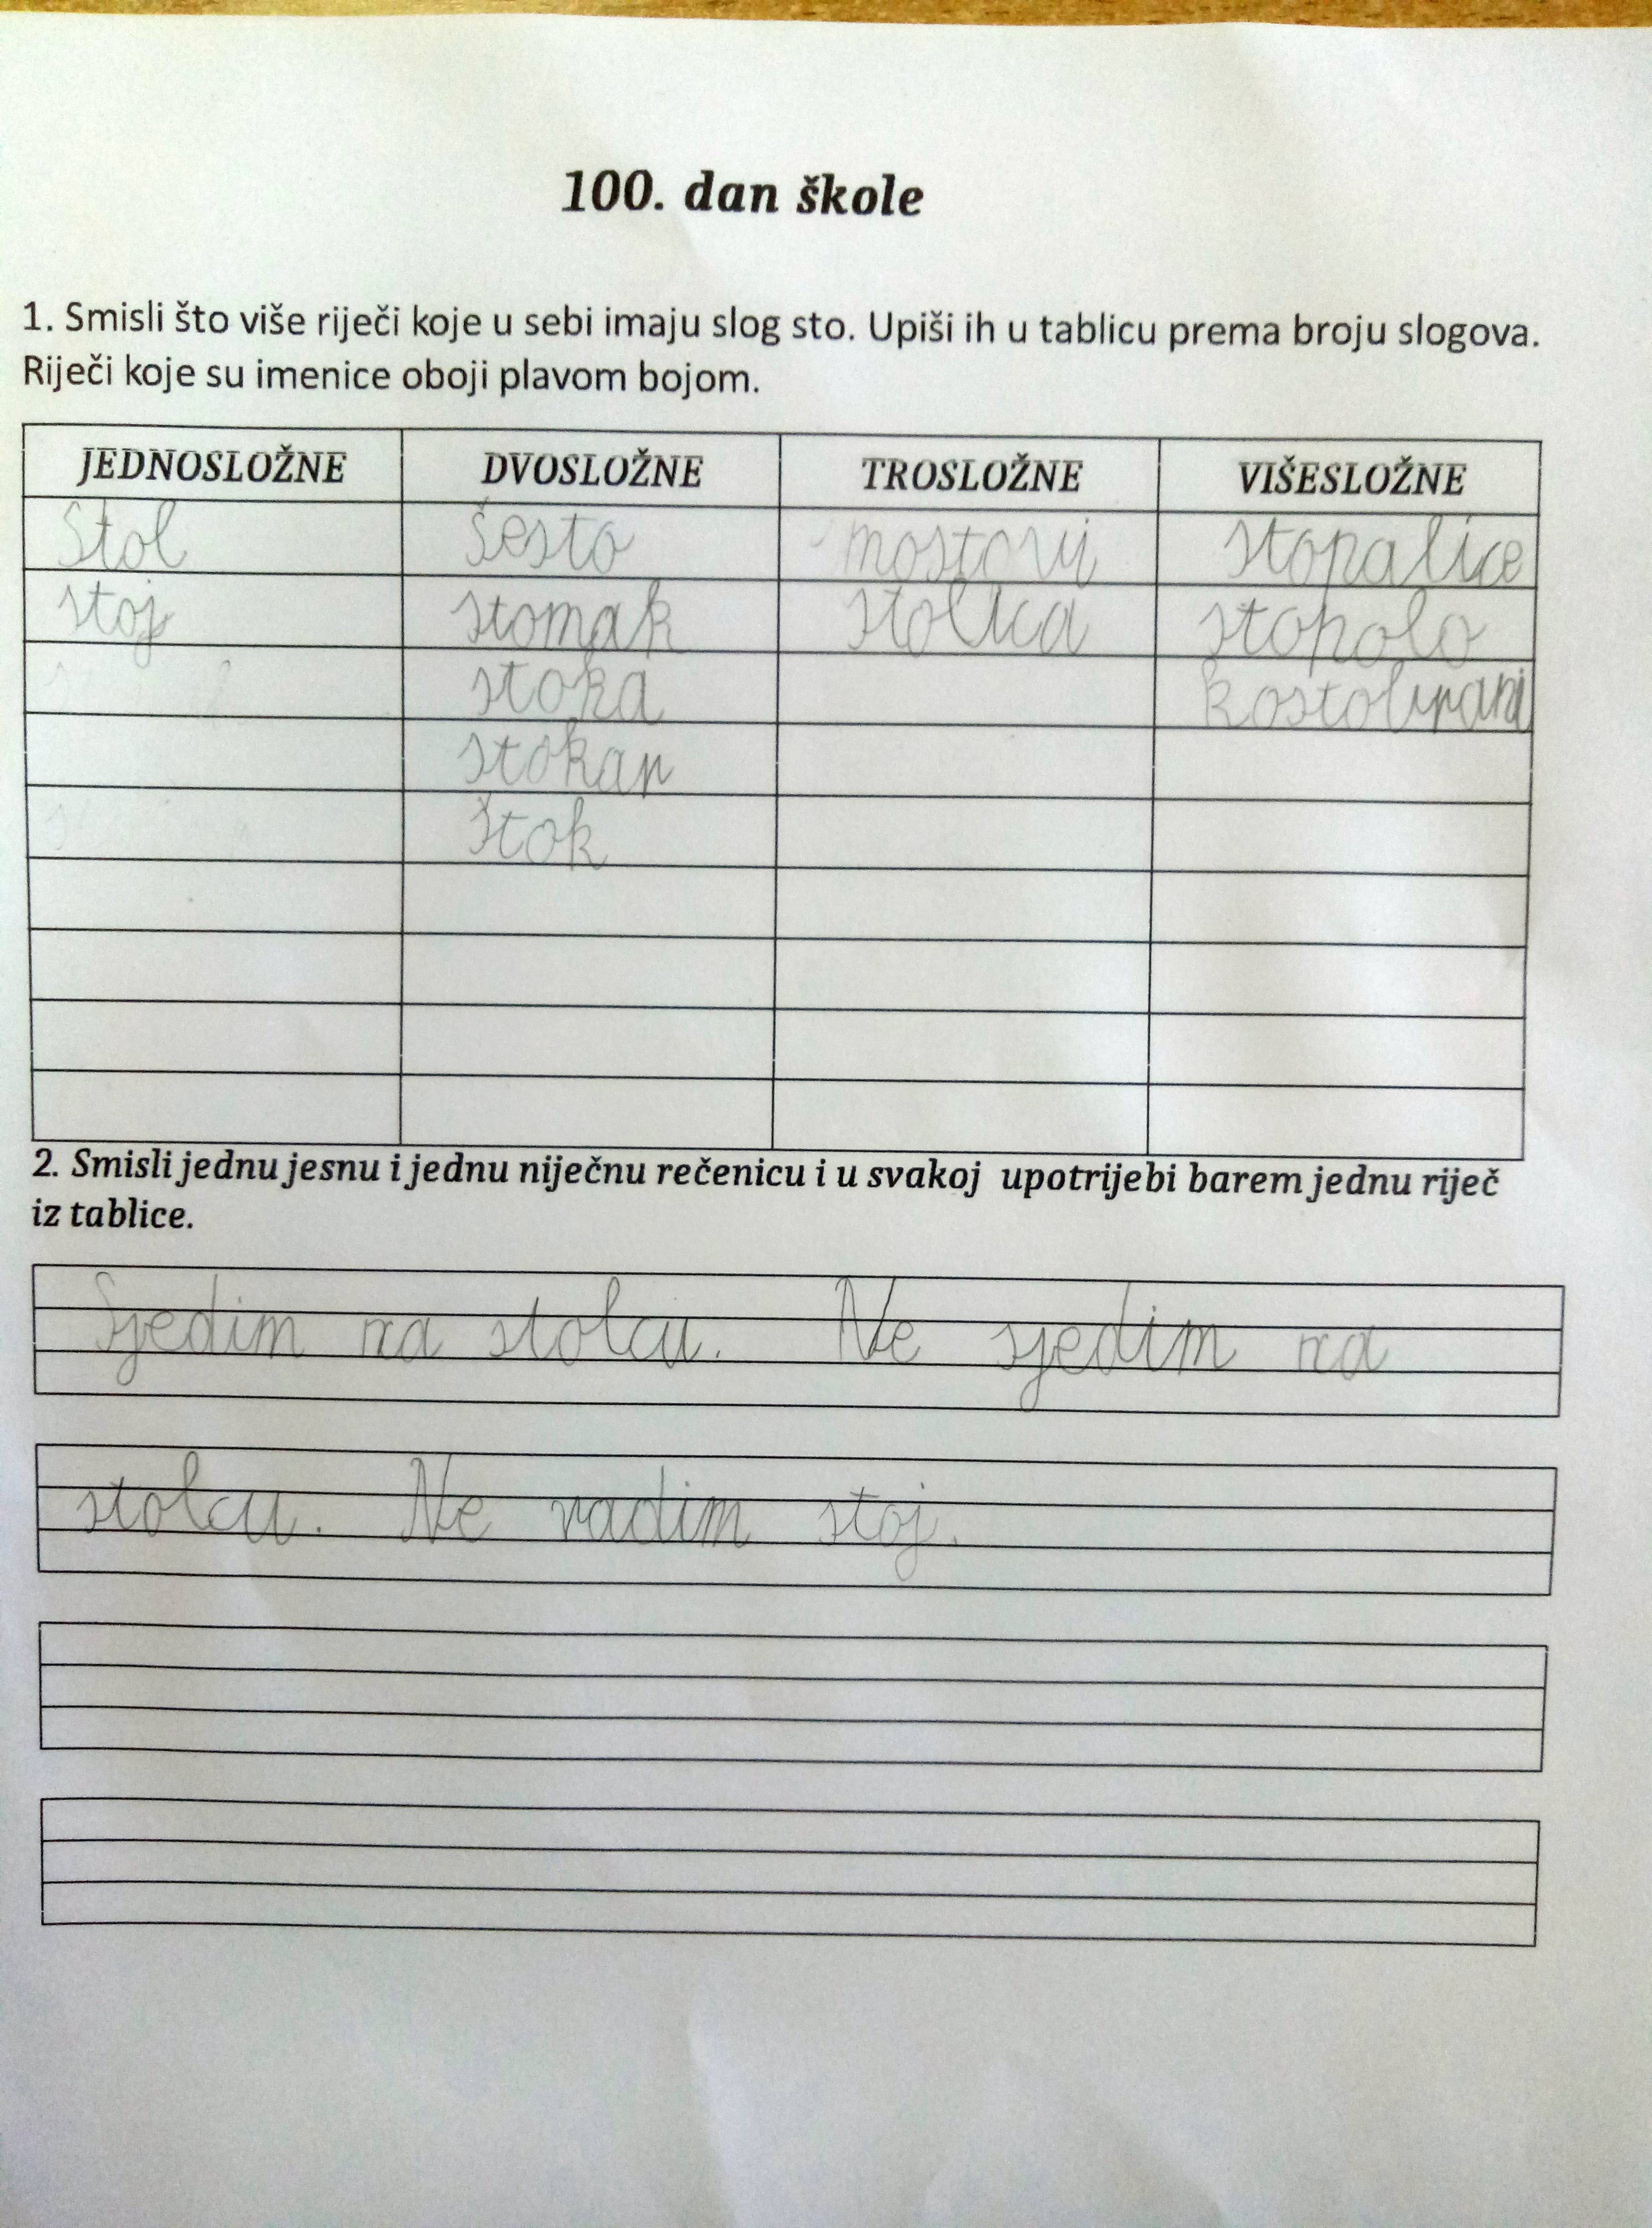 100. dan škole
1. Smisli što više riječi koje u sebi imaju slog sto. Upiši ih u tablicu prema broju slogova.
Riječi koje su imenice oboji plavom bojom.
JEDNOSLOŽNE DVOSLOŽNE TROSLOŽNE VIŠESLOŽNE
Stol šesto mostovi stopalice
stoj stomak stolica stopolo
stoka kostolirani
stokan
štok
2. Smisli jednu jesnu i jednu niječnu rečenicu i u svakoj upotrijebi barem jednu riječ
iz tablice.
Sjedim na stolcu. Ne sjedim na
stolcu. Ne radim stoj.